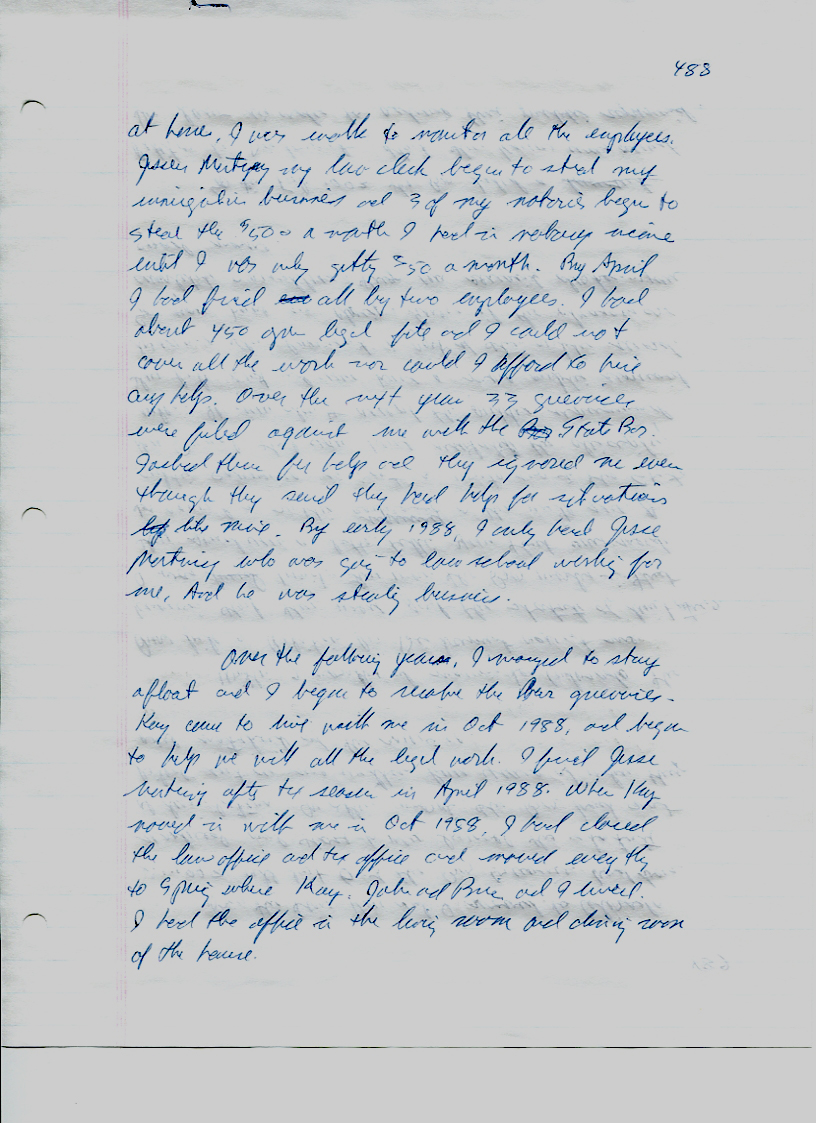 488
at home, I was unable to monitor all the employees.
Jesse Martinez my law clerk began to steal my
immigration business and 3 of my notaries began to
steal the $500 a month I had in notary income
until I was only getting $50 a month. By April
I had fired all but two employees. I had
about 450 open legal files and I could not
cover all the work nor could I afford to hire
any help. Over the next year 33 grievances
were filed against me with the State Bar.
I asked them for help and they ignored me even
though they said they had help for situations
like mine. By early 1988, I only had Jesse
Martinez who was going to law school working for
me. And he was stealing business.
Over the following years, I managed to stay
afloat and I began to resolve the Bar grievances.
Kay came to live with me in Oct 1988, and began
to help me with all the legal work. I fired Jesse
Martinez after tax season in April 1988. When Kay
moved in with me in Oct 1988, I had closed
the law office and tax office and moved everything
to Spring where Kay, John and Brian and I lived.
I had the office in the living room and dining room
of the house.